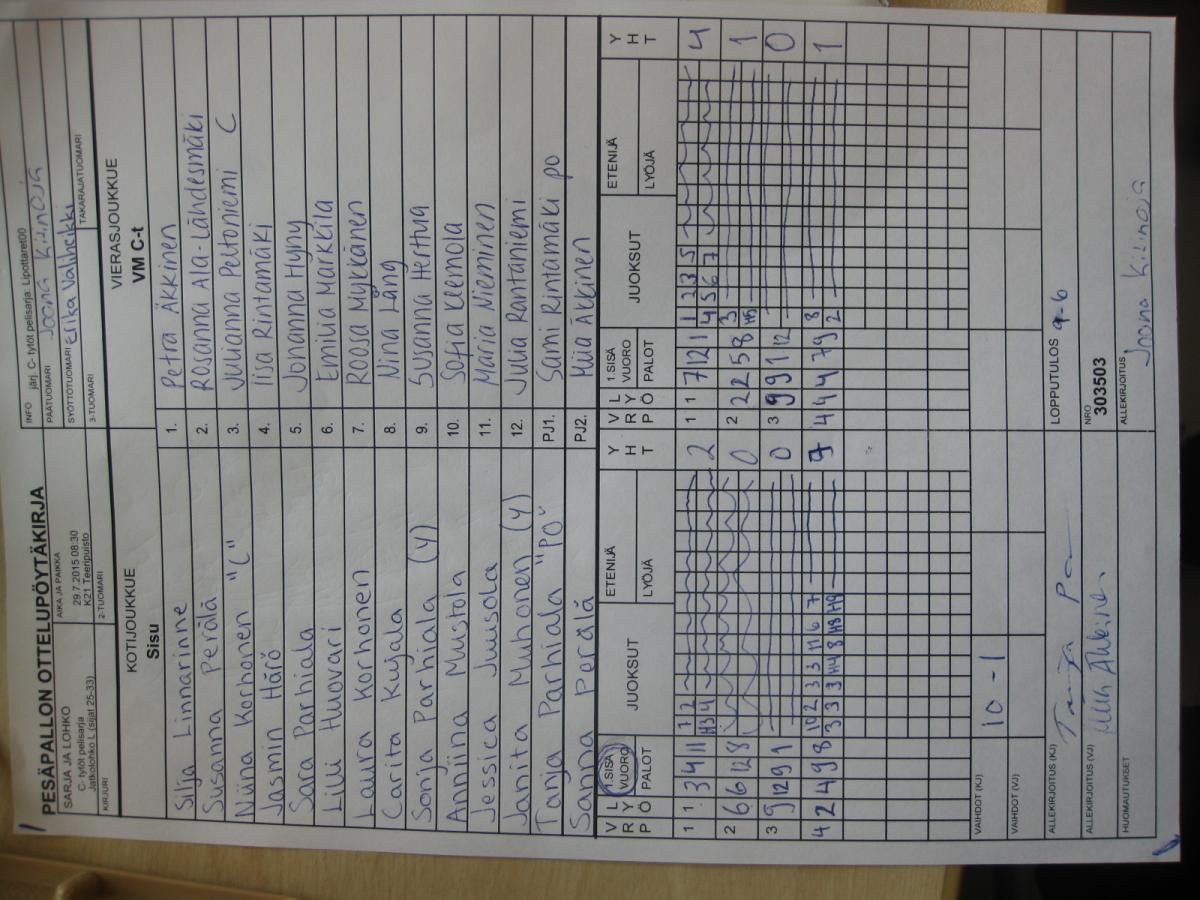 PESÄPALLON OTTELUPÖYTÄKIRJA
INFO järj. C- tytöt pelisarja: Lipottaret00
SARJA JA LOHKO
C- tytöt pelisarja
Jatkolohko L (sijat 25-33)
AIKA JA PAIKKA
29.7.2015 08:30
K21 Teeripuisto
PÄÄTUOMARI Joona Kitinoja
SYÖTTÖTUOMARI Erika Väliheikki
KIRJURI
2-TUOMARI
3-TUOMARI
TAKARAJATUOMARI
KOTIJOUKKUE
Sisu
VIERASJOUKKUE
VM C-t
Silja Linnarinne 1. Petra Äkkinen
Susanna Perälä 2. Rosanna Ala-Lähdesmäki
Niina Korhonen "C" 3. Julianna Peltoniemi C
Jasmin Härö 4. Iisa Rintamäki
Sara Parhiala 5. Jonanna Hyny
Lilli Huovari 6. Emilia Markkila
Laura Korhonen 7. Roosa Mykkänen
Carita Kujala 8. Nina Lång
Sonja Parhiala (Y) 9. Susanna Herttua
Anniina Mustola 10. Sofia Kleemola
Jessica Juusola 11. Maria Nieminen
Janita Muhonen (Y) 12. Julia Rantaniemi
Tanja Parhiala "PO" PJ1. Sami Rintamäki po
Sanna Perälä PJ2. Miia Äkkinen
VRP LYÖ 1.SISÄ VUORO PALOT JUOKSUT ETENIJÄ LYÖJÄ YHT
VRP LYÖ 1.SISÄ VUORO PALOT JUOKSUT ETENIJÄ LYÖJÄ YHT
1 1 3 4 11 1 2 2 1 1 7 12 1 1 2 3 5 4
H3 4 4 5 6 7
2 6 6 12 8 0 2 2 2 5 8 3 1
H5
3 9 12 9 1 0 3 9 9 1 12 0
4 2 4 9 8 10 2 3 3 11 6 7 7 4 4 4 7 9 8 1
3 3 3 H4 8 H8 H9 2
VAIHDOT (KJ) 10 - 1
VAIHDOT (VJ)
ALLEKIRJOITUS (KJ)
LOPPUTULOS 9-6
ALLEKIRJOITUS (VJ) Miia Äkkinen
NRO
303503
HUOMAUTUKSET
ALLEKIRJOITUS Joona Kitinoja